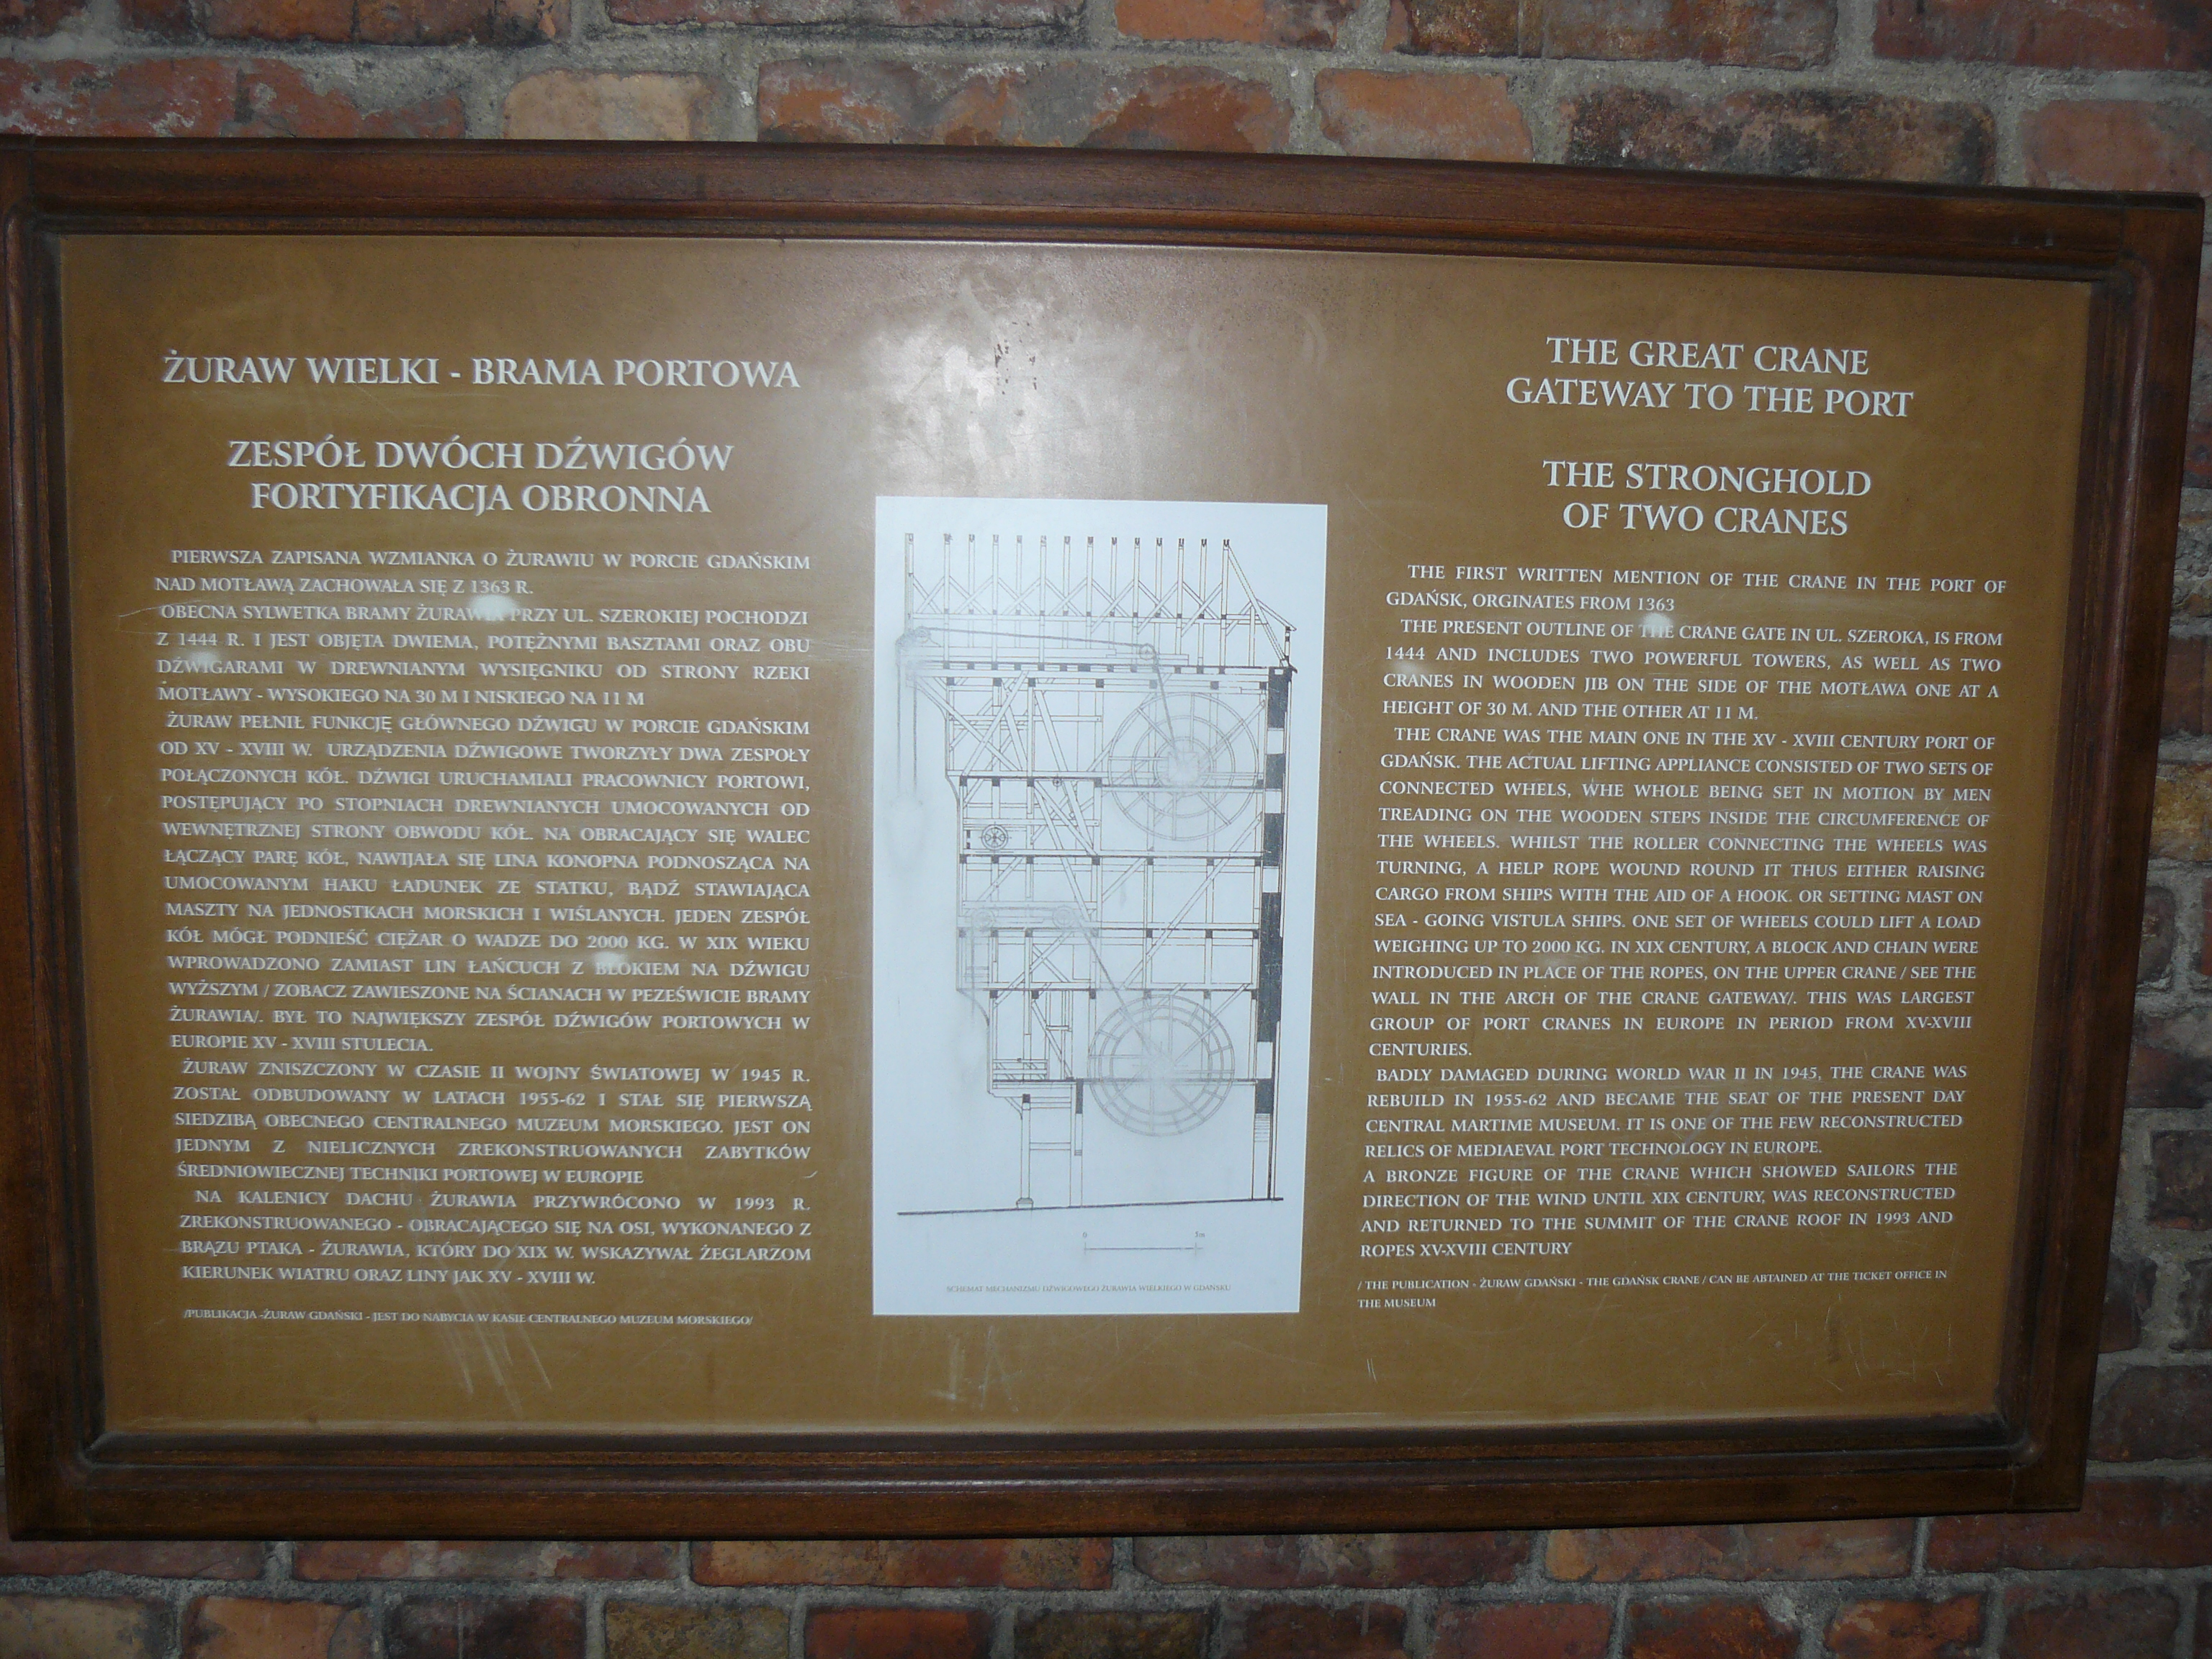 ŻURAW WIELKI - BRAMA PORTOWA
ZESPÓŁ DWÓCH DŹWIGÓW
FORTYFIKACJA OBRONNA
PIERWSZA ZAPISANA WZMIANKA O ŻURAWIU W PORCIE GDAŃSKIM
NAD MOTŁAWĄ ZACHOWAŁA SIĘ Z 1363 R.
OBECNA SYLWETKA BRAMY ŻURAWIA PRZY UL. SZEROKIEJ POCHODZI
Z 1444 R. I JEST OBJĘTA DWIEMA, POTĘŻNYMI BASZTAMI ORAZ OBU
DŹWIGARAMI W DREWNIANYM WYSIĘGNIKU OD STRONY RZEKI
MOTŁAWY - WYSOKIEGO NA 30 M I NISKIEGO NA 11 M
ŻURAW PEŁNIŁ FUNKCJĘ GŁÓWNEGO DŹWIGU W PORCIE GDAŃSKIM
OD XV - XVIII W. URZĄDZENIA DŹWIGOWE TWORZYŁY DWA ZESPOŁY
POŁĄCZONYCH KÓŁ. DŹWIGI URUCHAMIALI PRACOWNICY PORTOWI,
POSTĘPUJĄCY PO STOPNIACH DREWNIANYCH UMOCOWANYCH OD
WEWNĘTRZNEJ STRONY OBWODU KÓŁ. NA OBRACAJĄCY SIĘ WALEC
ŁĄCZĄCY PARĘ KÓŁ, NAWIJAŁA SIĘ LINA KONOPNA PODNOSZĄCA NA
UMOCOWANYM HAKU ŁADUNEK ZE STATKU, BĄDŹ STAWIAJĄCA
MASZTY NA JEDNOSTKACH MORSKICH I WIŚLANYCH. JEDEN ZESPÓŁ
KÓŁ MÓGŁ PODNIEŚĆ CIĘŻAR O WADZE DO 2000 KG. W XIX WIEKU
WPROWADZONO ZAMIAST LIN ŁAŃCUCH Z BLOKIEM NA DŹWIGU
WYŻSZYM / ZOBACZ ZAWIESZONE NA ŚCIANACH W PEZEŚWICIE BRAMY
ŻURAWIA/. BYŁ TO NAJWIĘKSZY ZESPÓŁ DŹWIGÓW PORTOWYCH W
EUROPIE XV - XVIII STULECIA.
ŻURAW ZNISZCZONY W CZASIE II WOJNY ŚWIATOWEJ W 1945 R.
ZOSTAŁ ODBUDOWANY W LATACH 1955-62 I STAŁ SIĘ PIERWSZĄ
SIEDZIBĄ OBECNEGO CENTRALNEGO MUZEUM MORSKIEGO. JEST ON
JEDNYM Z NIELICZNYCH ZREKONSTRUOWANYCH ZABYTKÓW
ŚREDNIOWIECZNEJ TECHNIKI PORTOWEJ W EUROPIE
NA KALENICY DACHU ŻURAWIA PRZYWRÓCONO W 1993 R.
ZREKONSTRUOWANEGO - OBRACAJĄCEGO SIĘ NA OSI, WYKONANEGO Z
BRĄZU PTAKA - ŻURAWIA, KTÓRY DO XIX W. WSKAZYWAŁ ŻEGLARZOM
KIERUNEK WIATRU ORAZ LINY JAK XV - XVIII W.
/PUBLIKACJA -ŻURAW GDAŃSKI - JEST DO NABYCIA W KASIE CENTRALNEGO MUZEUM MORSKIEGO/
0 5m
SCHEMAT MECHANIZMU DŹWIGOWEGO ŻURAWIA WIELKIEGO W GDAŃSKU
THE GREAT CRANE
GATEWAY TO THE PORT
THE STRONGHOLD
OF TWO CRANES
THE FIRST WRITTEN MENTION OF THE CRANE IN THE PORT OF
GDAŃSK, ORGINATES FROM 1363
THE PRESENT OUTLINE OF THE CRANE GATE IN UL. SZEROKA, IS FROM
1444 AND INCLUDES TWO POWERFUL TOWERS, AS WELL AS TWO
CRANES IN WOODEN JIB ON THE SIDE OF THE MOTŁAWA ONE AT A
HEIGHT OF 30 M. AND THE OTHER AT 11 M.
THE CRANE WAS THE MAIN ONE IN THE XV - XVIII CENTURY PORT OF
GDAŃSK. THE ACTUAL LIFTING APPLIANCE CONSISTED OF TWO SETS OF
CONNECTED WHELS, WHE WHOLE BEING SET IN MOTION BY MEN
TREADING ON THE WOODEN STEPS INSIDE THE CIRCUMFERENCE OF
THE WHEELS. WHILST THE ROLLER CONNECTING THE WHEELS WAS
TURNING, A HELP ROPE WOUND ROUND IT THUS EITHER RAISING
CARGO FROM SHIPS WITH THE AID OF A HOOK. OR SETTING MAST ON
SEA - GOING VISTULA SHIPS. ONE SET OF WHEELS COULD LIFT A LOAD
WEIGHING UP TO 2000 KG. IN XIX CENTURY, A BLOCK AND CHAIN WERE
INTRODUCED IN PLACE OF THE ROPES, ON THE UPPER CRANE / SEE THE
WALL IN THE ARCH OF THE CRANE GATEWAY/. THIS WAS LARGEST
GROUP OF PORT CRANES IN EUROPE IN PERIOD FROM XV-XVIII
CENTURIES.
BADLY DAMAGED DURING WORLD WAR II IN 1945, THE CRANE WAS
REBUILD IN 1955-62 AND BECAME THE SEAT OF THE PRESENT DAY
CENTRAL MARTIME MUSEUM. IT IS ONE OF THE FEW RECONSTRUCTED
RELICS OF MEDIAEVAL PORT TECHNOLOGY IN EUROPE.
A BRONZE FIGURE OF THE CRANE WHICH SHOWED SAILORS THE
DIRECTION OF THE WIND UNTIL XIX CENTURY, WAS RECONSTRUCTED
AND RETURNED TO THE SUMMIT OF THE CRANE ROOF IN 1993 AND
ROPES XV-XVIII CENTURY
/ THE PUBLICATION - ŻURAW GDAŃSKI - THE GDAŃSK CRANE / CAN BE ABTAINED AT THE TICKET OFFICE IN
THE MUSEUM